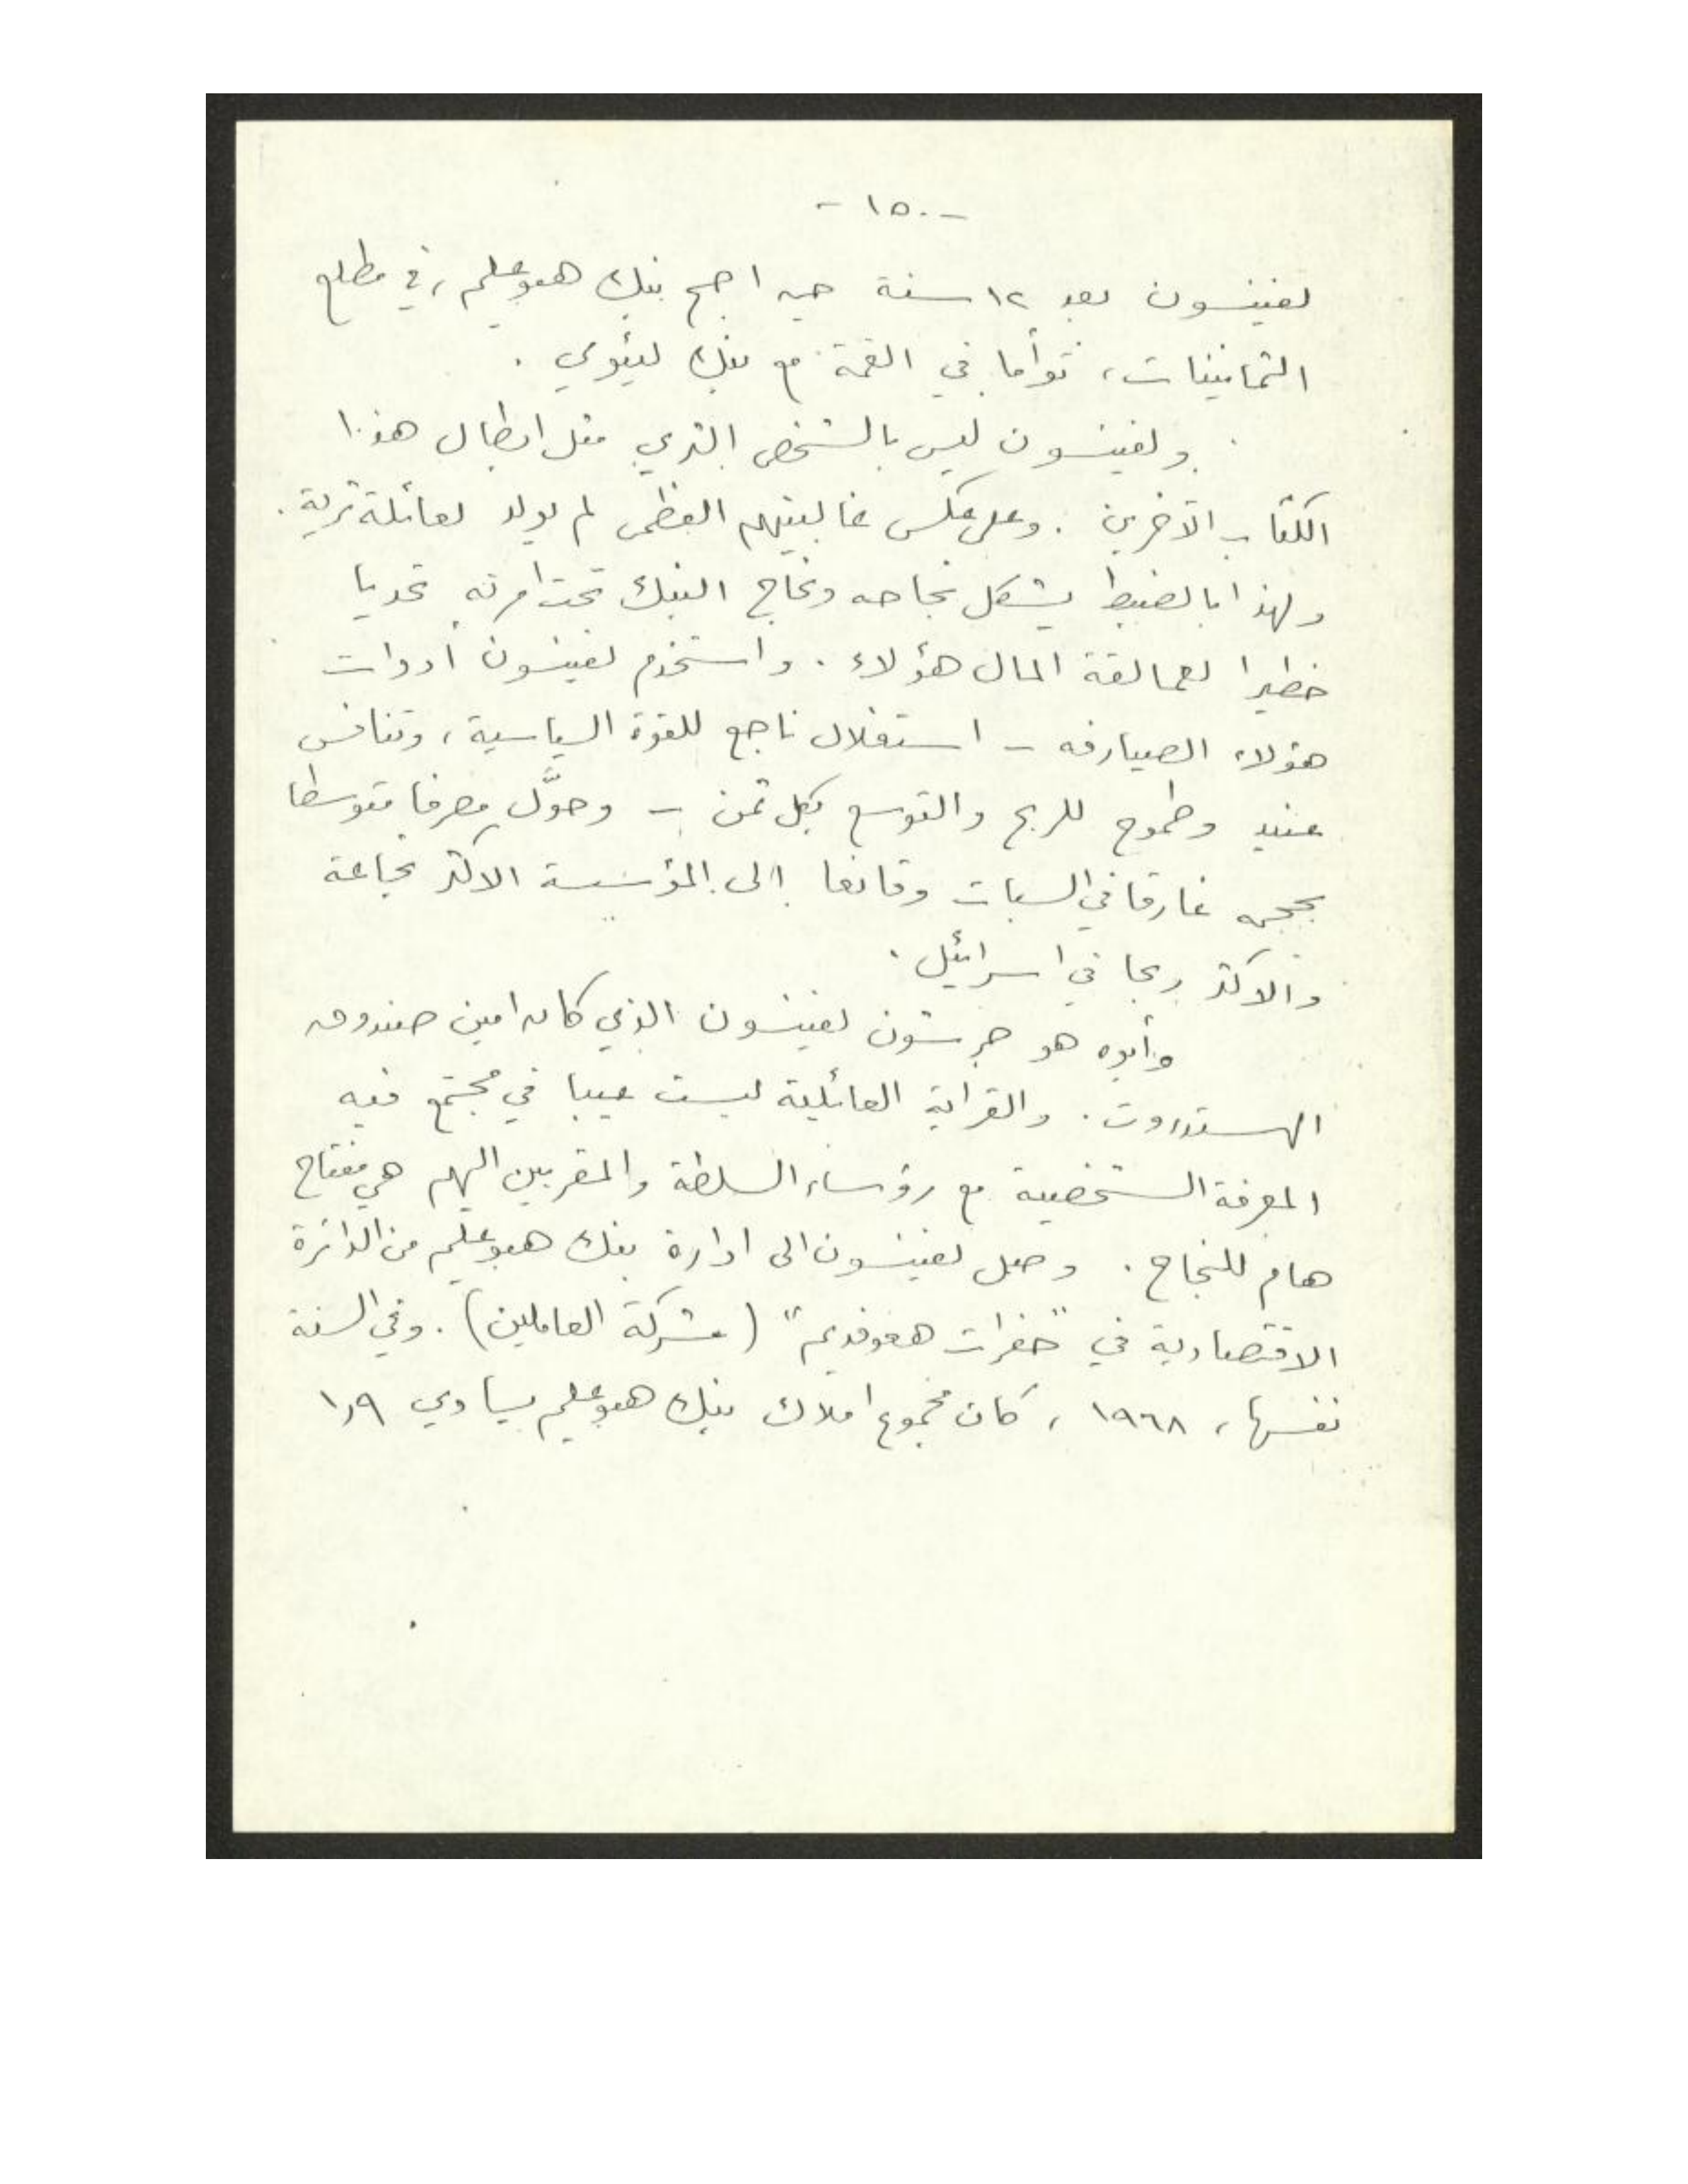 - ١٥٠ -
لفينسون بعد ١٢ سنة حين اصبح بنك هبوعليم، في مطلع
الثمانينات، توأما في القمة مع بنك ليئومي .
ولفينسون ليس بالشخص الثري مثل ابطال هذا
الكتاب الآخرين . وعلى عكس غالبيتهم العظمى لم يولد لعائلة ثرية .
ولهذا بالضبط يشكل نجاحه ونجاح البنك تحت امرته تحديا
خطيرا لعمالقة المال هؤلاء . واستخدم لفينسون أدوات
هؤلاء الصيارفه - استغلال ناجع للقوة السياسية، وتنافس
عنيد وطموح للربح والتوسع بكل ثمن - وحوَّل مصرفا متوسطا
بحجمه غارقا في السبات وقانعا الى المؤسسة الاكثر نجاعة
والاكثر ربحا في اسرائيل .
وأبوه هو جرشون لفينسون الذي كان امين صندوق
الهستدروت . والقرابة العائلية ليست عيبا في مجتمع فيه
المعرفة الشخصية مع رؤساء السلطة والمقربين اليهم هي مفتاح
هام للنجاح . وصل لفينسون الى ادارة بنك هبوعليم من الدائرة
الاقتصادية في "حفرات هعوفديم" (شركة العاملين) . وفي السنة
نفسها، ١٩٦٨، كان مجموع املاك بنك هبوعليم يساوي ١,٩